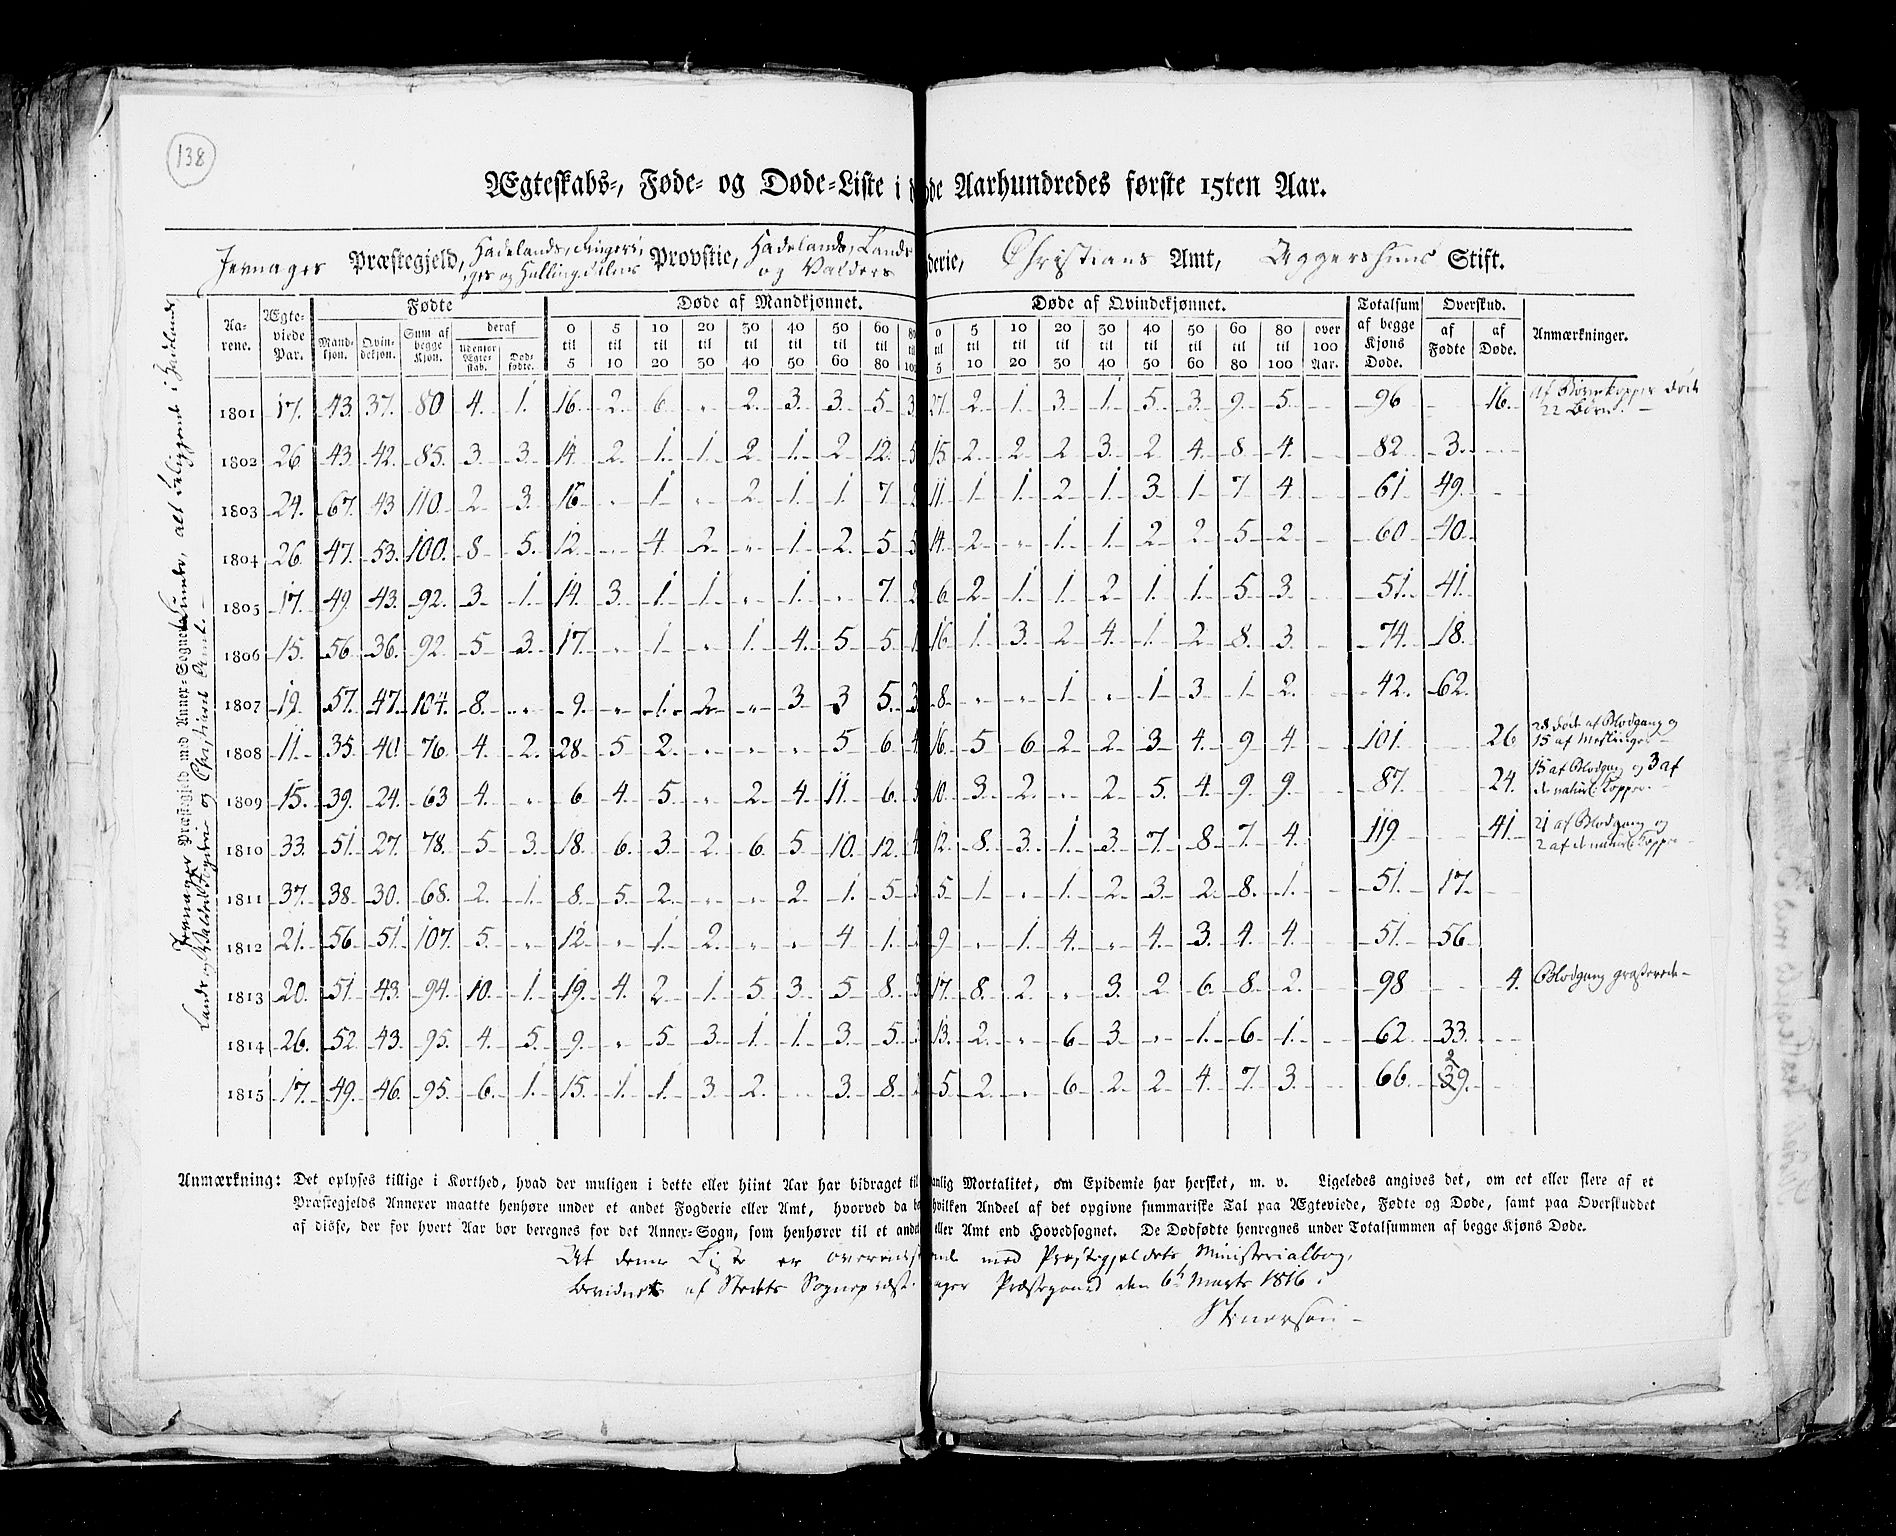 138
Ægteskabs-, Føde- og Døde-Liste i de Aarhundredes første 15ten Aar.
Jevnager Præstegjeld, Hadelands, Ringeri, Provstie, Hadelands, Lands derie, Christians Amt, Aggershuus Stift.
ges og Hallingdalens og Valders
Jevnager Præstegjeld med Annex-Sogne Lunder, alt beliggende i Hadelands
Lands og Valders Fogderie og Christians Amt.
Aarene. Ægteviede Par. Fødte Døde af Mandkjønnet. Døde af Qvindekjønnet. Totalsum af begge Kjøns Døde. Overskud. Anmærkninger.
Mandkjøn. Qvindekjøn. Sum af begge Kjøn. deraf af Fødte af Døde.
Udenfor Ægteskab. Dødfødte.
0 til 5 5 til 10 10 til 20 20 til 30 30 til 40 40 til 50 50 til 60 60 til 80 0 til 5 5 til 10 10 til 20 20 til 30 30 til 40 40 til 50 50 til 60 60 til 80 80 til 100 over 100 Aar.
1801 17. 43. 37. 80 4. 1. 16. 2. 6. „ 2. 3. 3. 5 3 27. 2. 1. 3. 1. 5. 3. 9. 5. 96 16. af Børnekopper døde
22 Børn.
1802 26 43. 42. 85. 3. 3. 14. 2. 1. 1. 2. 1. 2 12. 5 15 2 2 2 3. 2 4. 8 4. 82 3.
1803 24. 67. 43 110. 2 3. 16 „ 1. „ 2 1. 1. 7 11. 1. 1. 2 1. 3. 1. 7 4. 61 49.
1804 26. 47. 53. 100. 8 5. 12. „ 4. 2. „ 1. 2. 5 5 14. 2. „ 1. 1. 2 2. 5 2 60 40.
1805 17. 49. 43. 92. 3. 1. 14. 3. 1. 1. „ 1. „ 7. 2 6. 2. 1. 1. 2 1. 1. 5 3. 51. 41.
1806 15. 56. 36. 92. 5 3. 17. „ 1. „ 1. 4. 5 5 1 16 1. 3. 2 4. 1. 2 8. 3. 74. 18.
1807 19. 57. 47. 104. 8. „ 9. „ 1. 2. „ 3. 3 5. 3 8. „ „ 1. „ 1. 3 1. 2. 42. 62.
1808 11. 35. 40. 76. 4. 2. 28. 5 2. „ „ „ 5 6. 4 16. 5 6. 2 2. 3. 4. 9 4. 101. 26 28 døde af Blodgang og
15 af Meslinger
1809 15. 39. 24. 63 4. „ 6 4. 5. „ 2 4. 11. 6. 10. 3. 2. „ 2 5. 4. 9. 9. 87. 24. 15 af Blodgang og 3 af
de naturl. Kopper.
1810 33. 51. 27. 78. 5 3. 18. 6. 3. 2. 6. 5 10. 12. 4 12. 8. 3. 1. 3. 7. 8 7. 4. 119 41. 21 af Blodgang og
2 af de naturl. Kopper
1811 37. 38. 30. 68. 2. 1. 8. 5 2. „ „ 2. 1. 5 5. 1. „ 1. 2. 3. 2. 8. 1. 51. 17.
1812 21. 56. 51. 107. 5. „ 12. „ 1. 2. „ „ 4 1. 9 „ 1. 4. „ 4. 3. 4. 4. 51. 56
1813 20. 51. 43. 94. 10. 1. 19. 4. 2. 1. 5. 3. 5 8. 3 17. 8. 2. „ 3. 2 6. 8. 2. 98 4. Blodgang grasserede
1814 26. 52. 43. 95. 4. 5. 9. „ 5 3 1. 1. 3. 5. 3 13. 2. „ 6 3. „ 1. 6 1. 62. 33.
1815 17. 49. 46. 95. 6. 1. 15. 1. 1. 3 2. 3. 8. 5. 2. „ 6 2 2 4. 7. 3. 66. 29.
Anmærkning: Det oplyses tillige i Korthed, hvad der muligen i dette eller hiint Aar har bidraget til anlig Mortalitet, om Epidemie har hersket, m. v. Ligeledes angives det, om eet eller flere af et
Præstegjelds Annexer maatte henhøre under et andet Fogderie eller Amt, hvorved da be hvilken Andeel af det opgivne summariske Tal paa Ægteviede, Fødte og Døde, samt paa Overskuddet
af disse, der for hvert Aar bør beregnes for det Annex-Sogn, som henhører til et andet eller Amt end Hovedsognet. De Dødfødte henregnes under Totalsummen af begge Kjøns Døde.
At denne Liste er overeens ende med Præstegjeldets Ministerialbog,
bevidnes af Stedets Sognepræst. ager Præstegaard den 6t Marts 1816.
Stenersen